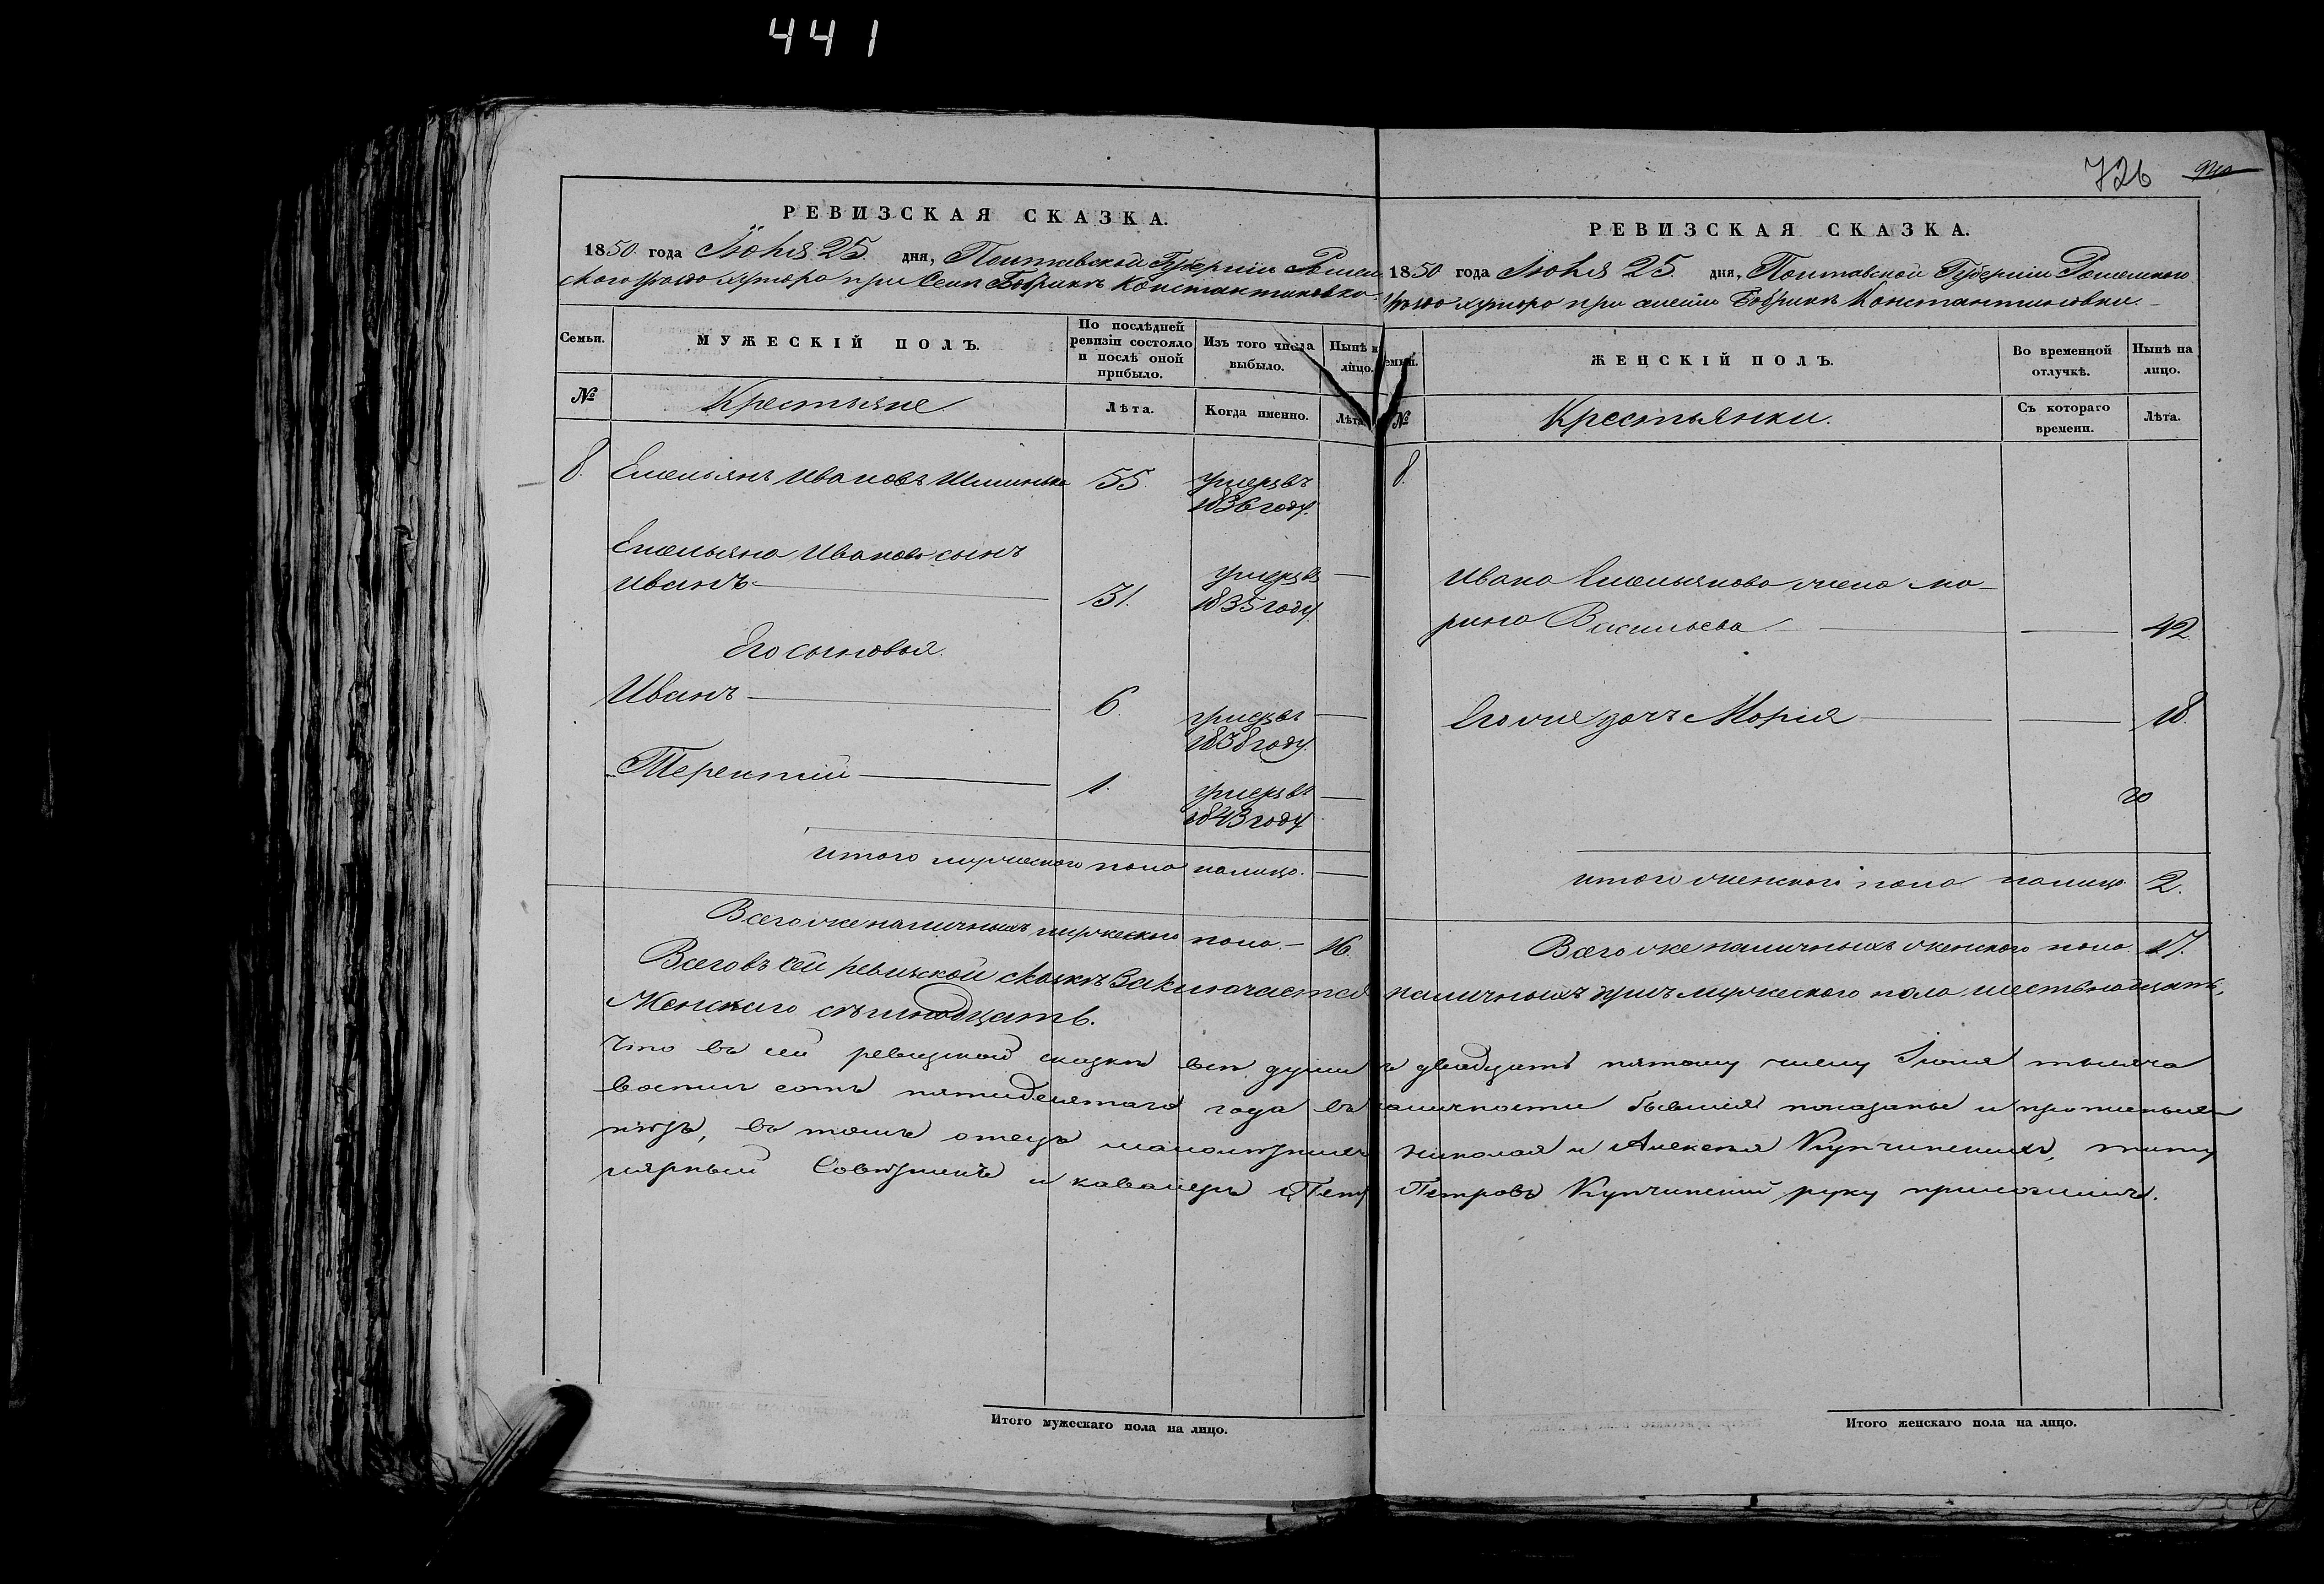 441
726
РЕВИЗСКАЯ СКАЗКА.
1850 года Іюня 25 дня, Полтавской Губерніи Ромен
скаго уѣзда хутора при селѣ Бобрикѣ Константиновки.
Семьи.
МУЖЕСКІЙ ПОЛЪ.
По послѣдней ревизіи состояло и послѣ оной прибыло.
Изъ того числа выбыло.
Нынѣ на лицо.
№
Крестьяне
Лѣта.
Когда именно.
Лѣта.
8. Емельянъ Ивановъ 55. умеръ въ
1836 году.
Емельяна Иванова сынъ
Иванъ 31. умеръ въ
1835 году.
Его сыновья.
Иванъ 6. умеръ въ
1838 году.
Терентій 1. умеръ въ
1843 году
Итого мужескаго пола налицо.
Всего же наличныхъ мужескаго пола. 16.
Всего въ сей ревизской сказкѣ заключается
Женскаго семнадцать.
Что въ сей ревизской сказкѣ всѣ души
восемь сотъ пятидесятаго года въ
въ томъ отецъ малолѣтнихъ
Совѣтникъ и кавалеръ
Итого мужескаго пола на лицо.
РЕВИЗСКАЯ СКАЗКА.
1850 года Іюня 25 дня, Полтавской Губерніи Роменскаго
уѣзда хутора при селѣ Бобрикѣ Константиновки.
Семьи.
ЖЕНСКІЙ ПОЛЪ.
Во временной отлучкѣ.
Нынѣ на лицо.
№
Крестьянки.
Съ котораго времени.
Лѣта.
8.
Ивана Емельянова жена Ма-
рина Васильева 42.
Его же дочь Марія 18.
Итого женскаго пола налицо 2.
Всего же наличныхъ женскаго пола. 17.
наличныхъ душъ мужескаго пола шестьнадцать,
двадцать пятому числу Іюня тысяча
наличности бывшія показаны и
Николая и Алексѣя Купчинскихъ, титу
Петровъ Купчинскій руку приложилъ.
Итого женскаго пола на лицо.